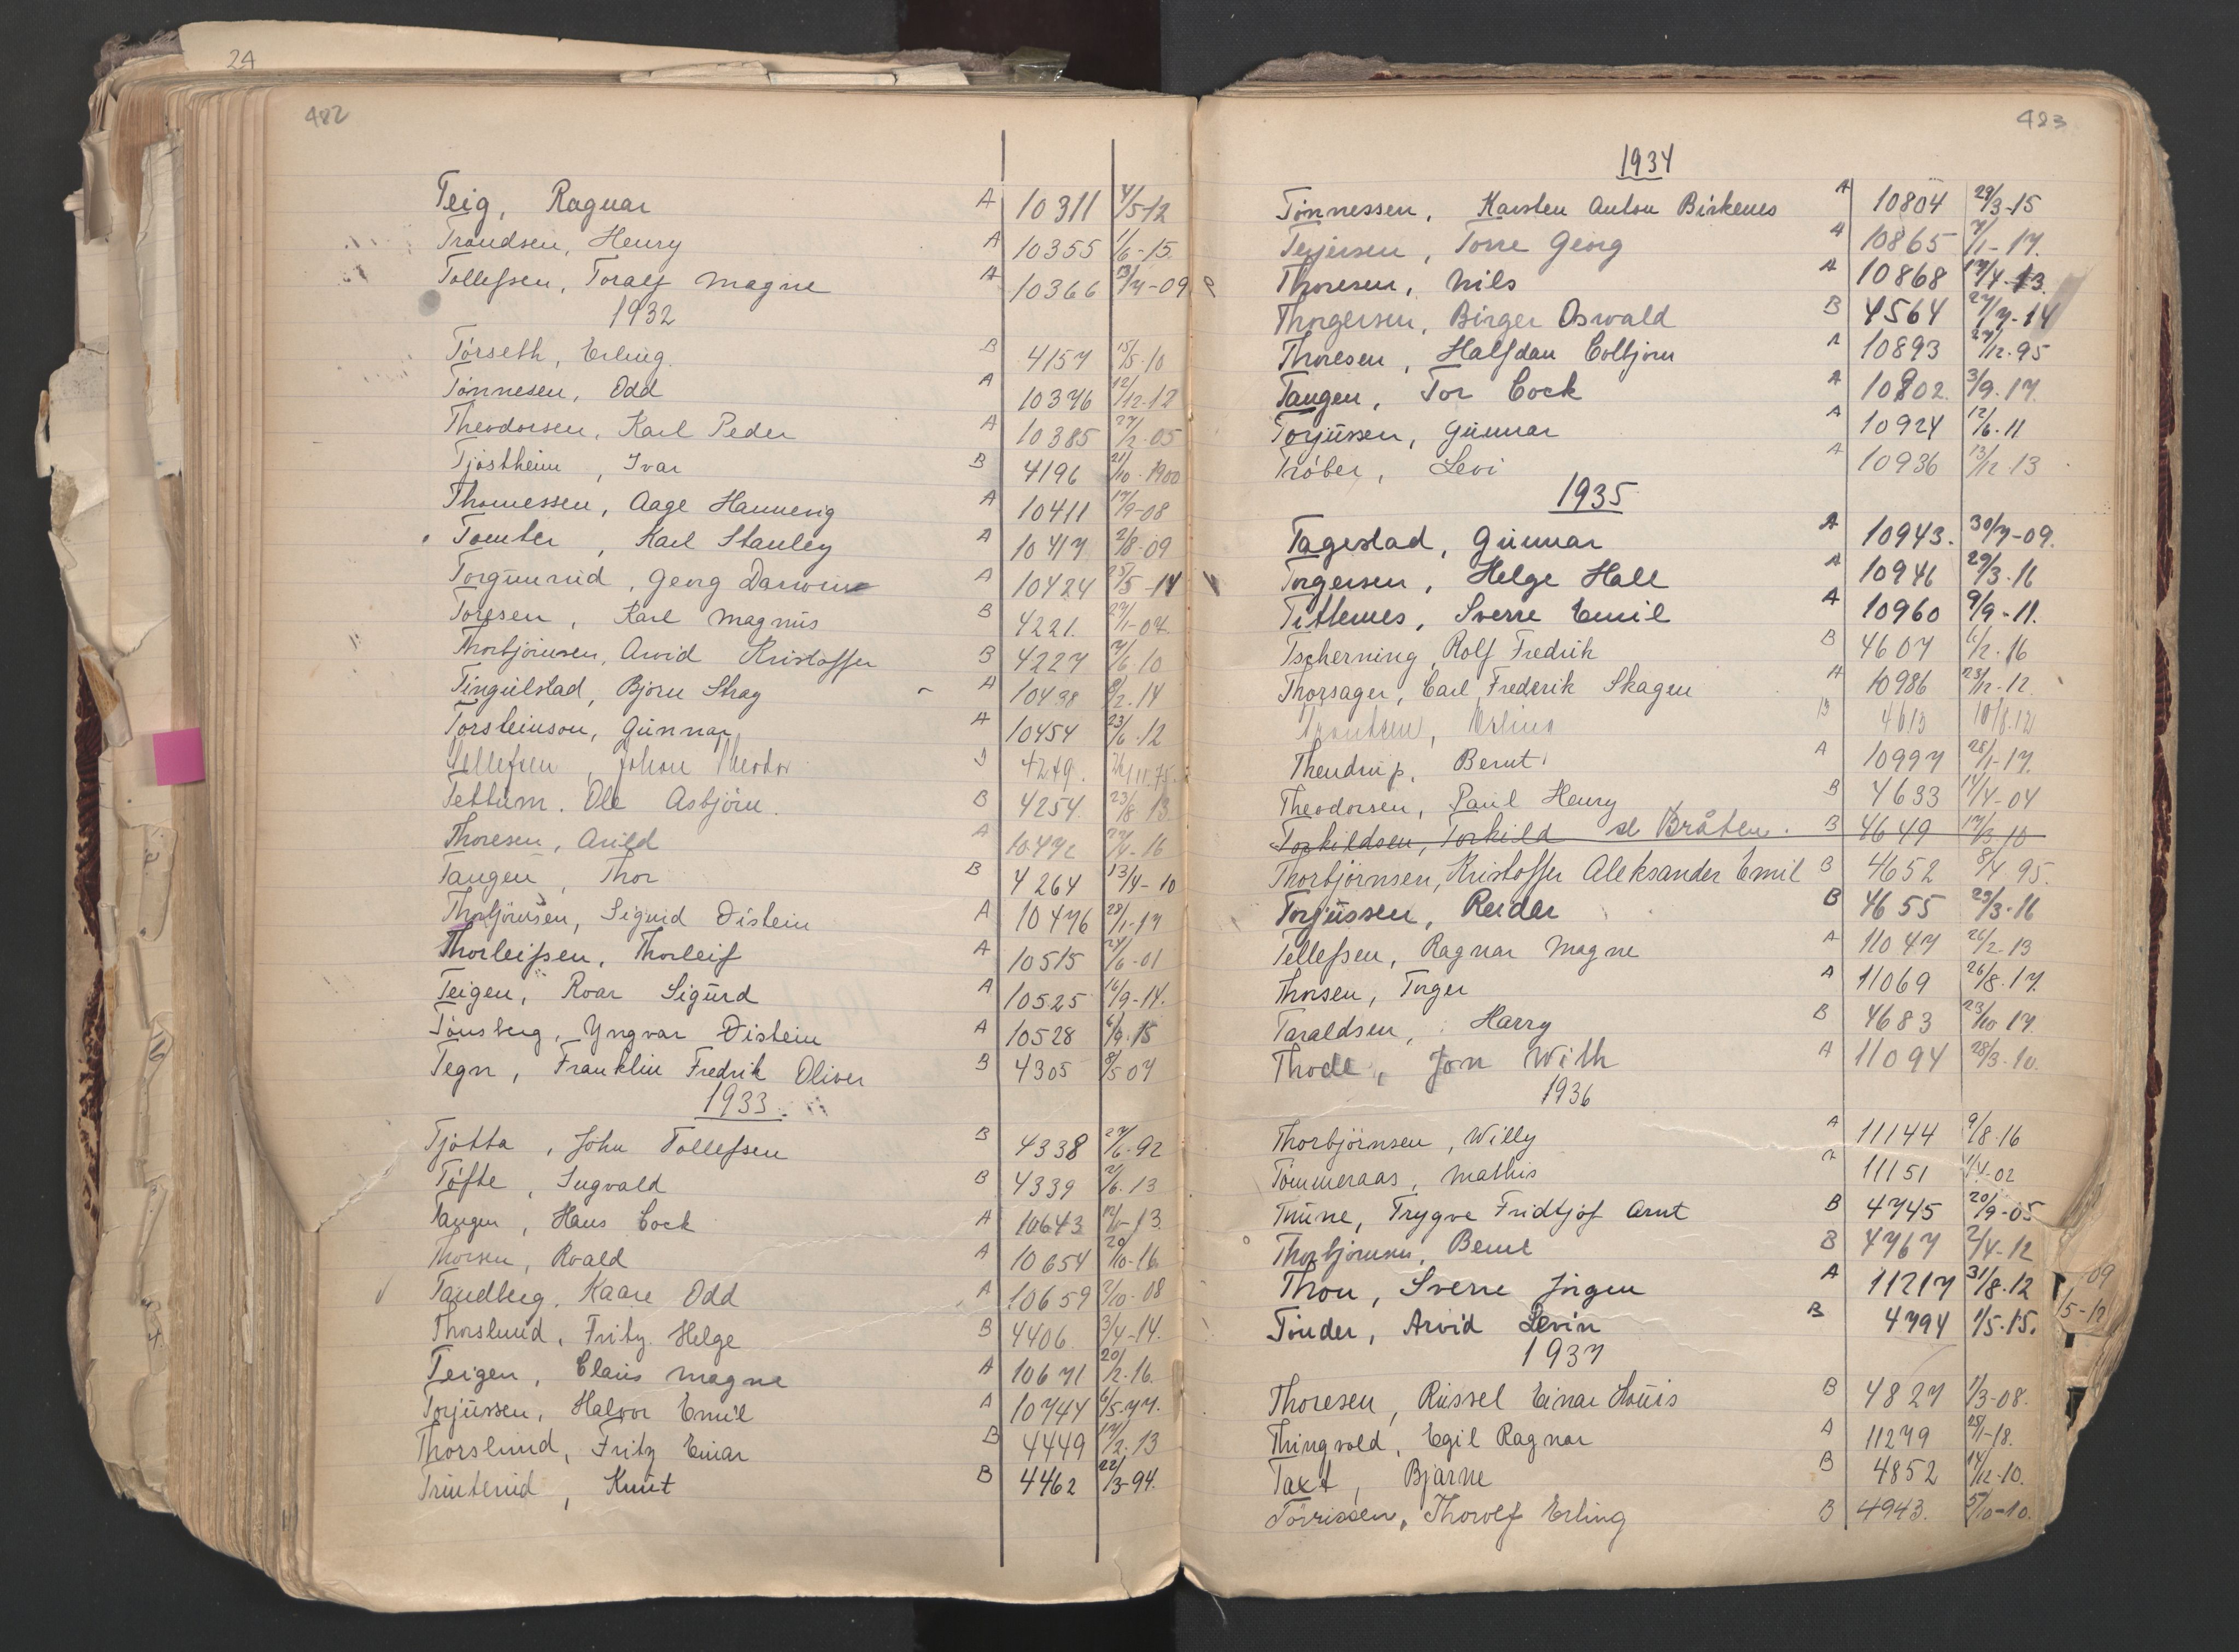 24
482
Teig, Ragnar A 10311 4/5-12
Trondsen, Henry A 10355 1/6-15
Tollefsen, Toralf Magne A 10366 13/7-09
1932
Törseth, Erling B 4157 15/5.10
Tönnesen, Odd A 10376 12/12.12
Theodorsen, Karl Peder A 10385 27/2-05
Tjöstheim, Ivar B 4196 21/10-1900
Thomessen, Aage Hannevig A 10411 17/9-08
Tomter, Karl Stanley A 10417 2/8-09
Torgunrud, Georg Darwin A 10424 25/5-14
Toresen, Karl Magnus B 4221. 27/1-07
Thorbjörnsen, Arvid Kristoffer B 4227 7/6.10
Tingulstad, Björn Stray A 10438 8/2.14
Torsteinson, Gunnar A 10454 23/6.12
Tellefsen, Johan Theodor 4249.
Tettum. Ole Asbjörn. B 4254. 23/8 13
Thoresen, Arild A 10472
Tangen, Thor B 4264 13/4-10
Thorbjörnsen, Sigurd Öistein A 10476 28/1-17
Thorleifsen, Thorleif A 10515 24/6-01
Teigen, Roar Sigurd A 10525 16/9-14.
Tönsberg, Yngvar Öistein A 10528 6/9.15
Tegn, Franklin Fredrik Oliver B 4305 8/5 07
1933
Tjötta, John Tollefsen B 4338 27/6-92
Töfte, Ingvald B 4339 2/6.13
Tangen, Hans Cock A 10643
Thorsen, Roald A 10654 20/10-16
Tandberg, Kaare Odd A 10659 2/10-08
Thorslund, Fritz Helge B 4406. 3/4-14.
Teigen, Claus Magne A 10671 20/2.16.
Torjussen, Halvor Emil A 10744 6/5.77.
Thorslund, Fritz Einar B 4449 17/2.13
Trinterud, Knut B 4462 22/3-94.
483
1934
Tönnessen, Karsten Anton Birkenes A 10804 29/3-15
Terjersen, Torre Georg A 10865 7/1-17.
Thoresen, Nils A 10868 17/4-13.
Thorgersen, Birger Oswald B 4564 27/7-14
Thoresen, Halfdan Colbjörn A 10893 27/12.95
Tangen, Tor Cock A 10902. 3/9.17.
Torjussen, Gunnar A 10924 12/6.11
Tröber, Levi A 10936 13/12.13
1935
Tagestad, Gunnar A 10943. 30/7-09.
Torgersen, Helge Hall A 10946 29/3.16
Titternes, Sverre Emil A 10960 9/9-11.
Tscherning, Rolf Fredrik B 4607 6/2.16
Thorsager, Carl Frederik Skagen A 10986 23/12-12.
Erling B 4613 10/8.12
Thendrup, Bernt A 10997 28/1-17.
Theodorsen, Paul Henry B 4633 17/4-04
Torkildsen, Torkild se Bråten. B 4649 17/3 10
Thorbjörnsen, Kristoffer Aleksander Emil B 4652 8/4 95.
Torjussen, Reidar B 4655 23/3-16
Tellefsen, Ragnar Magne A 11047 26/2-13
Thorsen, Torger A 11069 26/8.17.
Taraldsen, Harry B 4683 23/10 17.
Thode, Jon With A 11094 28/3-10.
1936
Thorbjörnsen, Willy A 11144 9/8.16
Tömmeraas, Mathis A 11151 1/4-02
Thune, Trygve Fridtjof Arnt B 4745 20/9-05
Thorbjörnsen, Bernt B 4767 2/4-12
Thon, Sverre Jörgen A 11217 31/8.12
09
Tönder, Arvid Levin B 4794 1/5.15.
15-12
1937
Thoresen, Russel Einar Louis B 4827 1/3-08.
Thingvold, Egil Ragnar A 11279 28/1-18.
Taxt, Bjarne B 4852 14/12-10.
Törrissen, Thorolf Erling B 4943. 5/10-10.